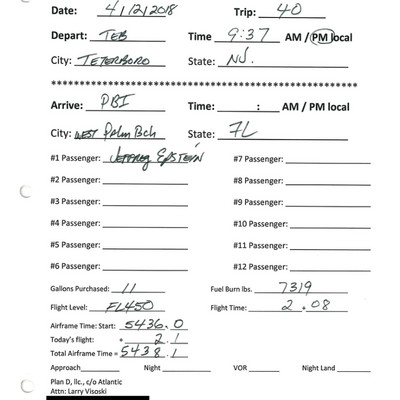 Date: 4/12/2018 Trip: 40
Depart: TEB Time 9:37 AM / PM local
City: TETERBORO State: NJ.
************************************************
Arrive: PBI Time: : AM / PM local
City: WEST Palm Bch State: FL
#1 Passenger: JEFFREY EPSTEIN #7 Passenger:
#2 Passenger: #8 Passenger:
#3 Passenger: #9 Passenger:
#4 Passenger: #10 Passenger:
#5 Passenger: #11 Passenger:
#6 Passenger: #12 Passenger:
Gallons Purchased: 11 Fuel Burn lbs. 7319
Flight Level: FL450 Flight Time: 2.08
Airframe Time: Start: 5436.0
Today's flight: + 2.1
Total Airframe Time = 5438.1
Approach Night VOR Night Land
Plan D, llc., c/o Atlantic
Attn: Larry Visoski